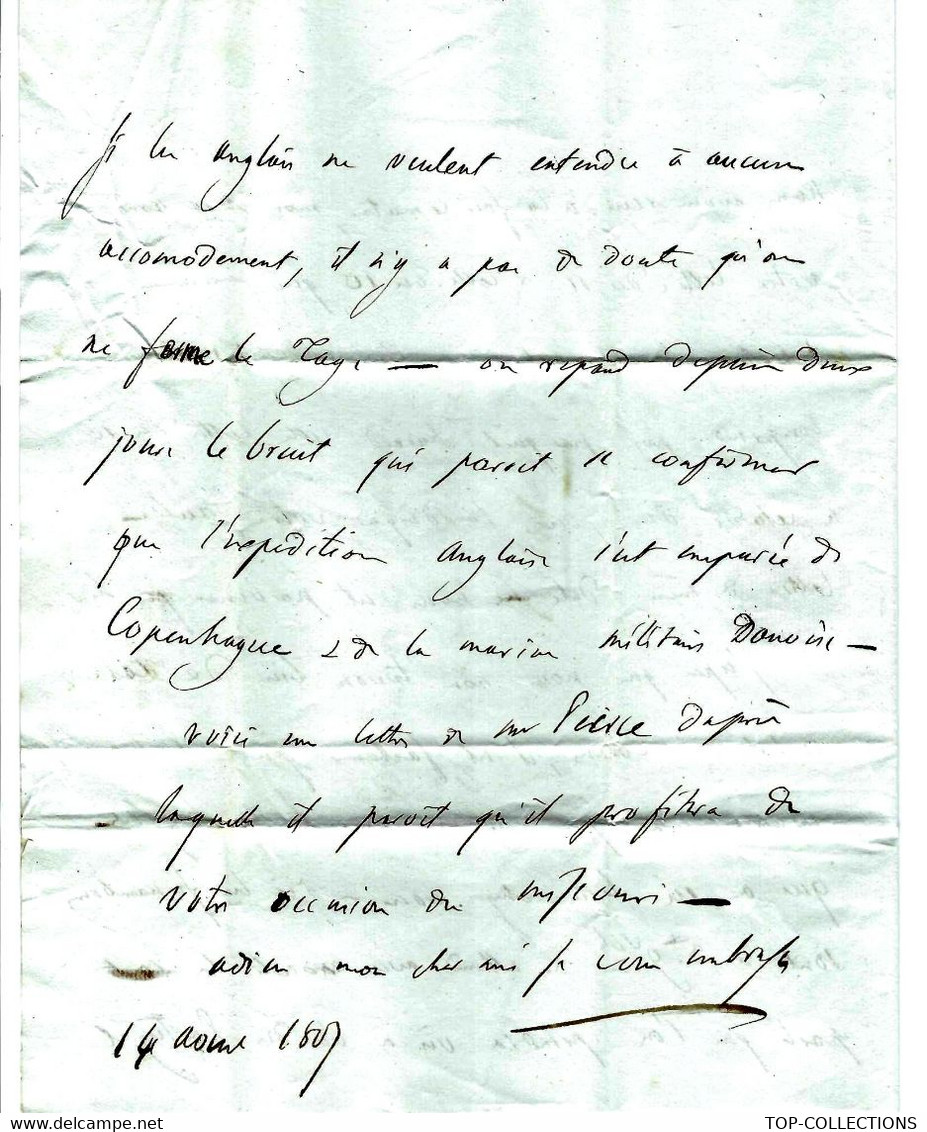 si les anglois ne veulent entendre à aucun
accomodement, il n'y a pas de doute qu'on
ne ferme le Tage — on repand depuis deux
jours le bruit qui paroit se confirmer
que l'expedition angloise s'est emparée de
Copenhague & de la marine militaire Danoise —
voici une lettre de mr Pierce d'après
laquelle il paroit qu'il profitera de
votre occasion du —
adieu mon cher ami je vous embrasse
14 1807
TOP-COLLECTIONS